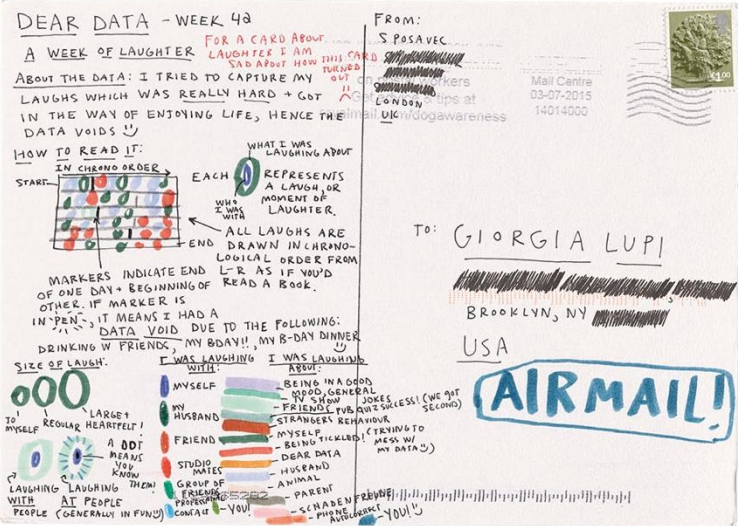 DEAR DATA - WEEK 42
A WEEK OF LAUGHTER
FOR A CARD ABOUT
LAUGHTER I AM
SAD ABOUT HOW THIS CARD
TURNED
OUT
ABOUT THE DATA: I TRIED TO CAPTURE MY
LAUGHS WHICH WAS REALLY HARD + GOT
IN THE WAY OF ENJOYING LIFE, HENCE THE
DATA VOIDS
HOW TO READ IT:
IN CHRONO ORDER
START
END
WHAT I WAS
LAUGHING ABOUT
EACH
WHO
I WAS
WITH
REPRESENTS
A LAUGH, OR
MOMENT OF
LAUGHTER.
ALL LAUGHS ARE
DRAWN IN CHRONO-
LOGICAL ORDER FROM
L-R AS IF YOU'D
READ A BOOK.
MARKERS INDICATE END
OF ONE DAY + BEGINNING OF
OTHER. IF MARKER IS
IN "PEN", IT MEANS I HAD A
DATA VOID DUE TO THE FOLLOWING:
DRINKING W FRIENDS, MY BDAY!!, MY B-DAY DINNER
SIZE OF LAUGH:
TO
MYSELF
REGULAR
LARGE +
HEARTFELT!
A DOT
MEANS
YOU
KNOW
THEM!
LAUGHING
WITH
PEOPLE
LAUGHING
AT PEOPLE
(GENERALLY IN FUN)
I WAS LAUGHING
WITH:
MYSELF
MY
HUSBAND
FRIEND
STUDIO
MATES
GROUP OF
FRIENDS
PROFESSIONAL
CONTACT
YOU!
I WAS LAUGHING
ABOUT:
BEING IN A GOOD
MOOD, GENERAL
TV SHOW
JOKES
FRIENDS
PUB QUIZ SUCCESS! (WE GOT
SECOND)
STRANGERS BEHAVIOUR
MYSELF
BEING TICKLED! (TRYING TO
MESS W/
MY DATA)
DEAR DATA
HUSBAND
ANIMAL
PARENT
SCHADENFREUDE
PHONE AUTOCORRECT
YOU!
FROM:
S POSAVEC
LONDON
UK
£1.00
Mail Centre
03-07-2015
14014000
tips at
royalmail.com/dogawareness
TO:
GIORGIA LUPI
BROOKLYN, NY
USA
AIRMAIL!